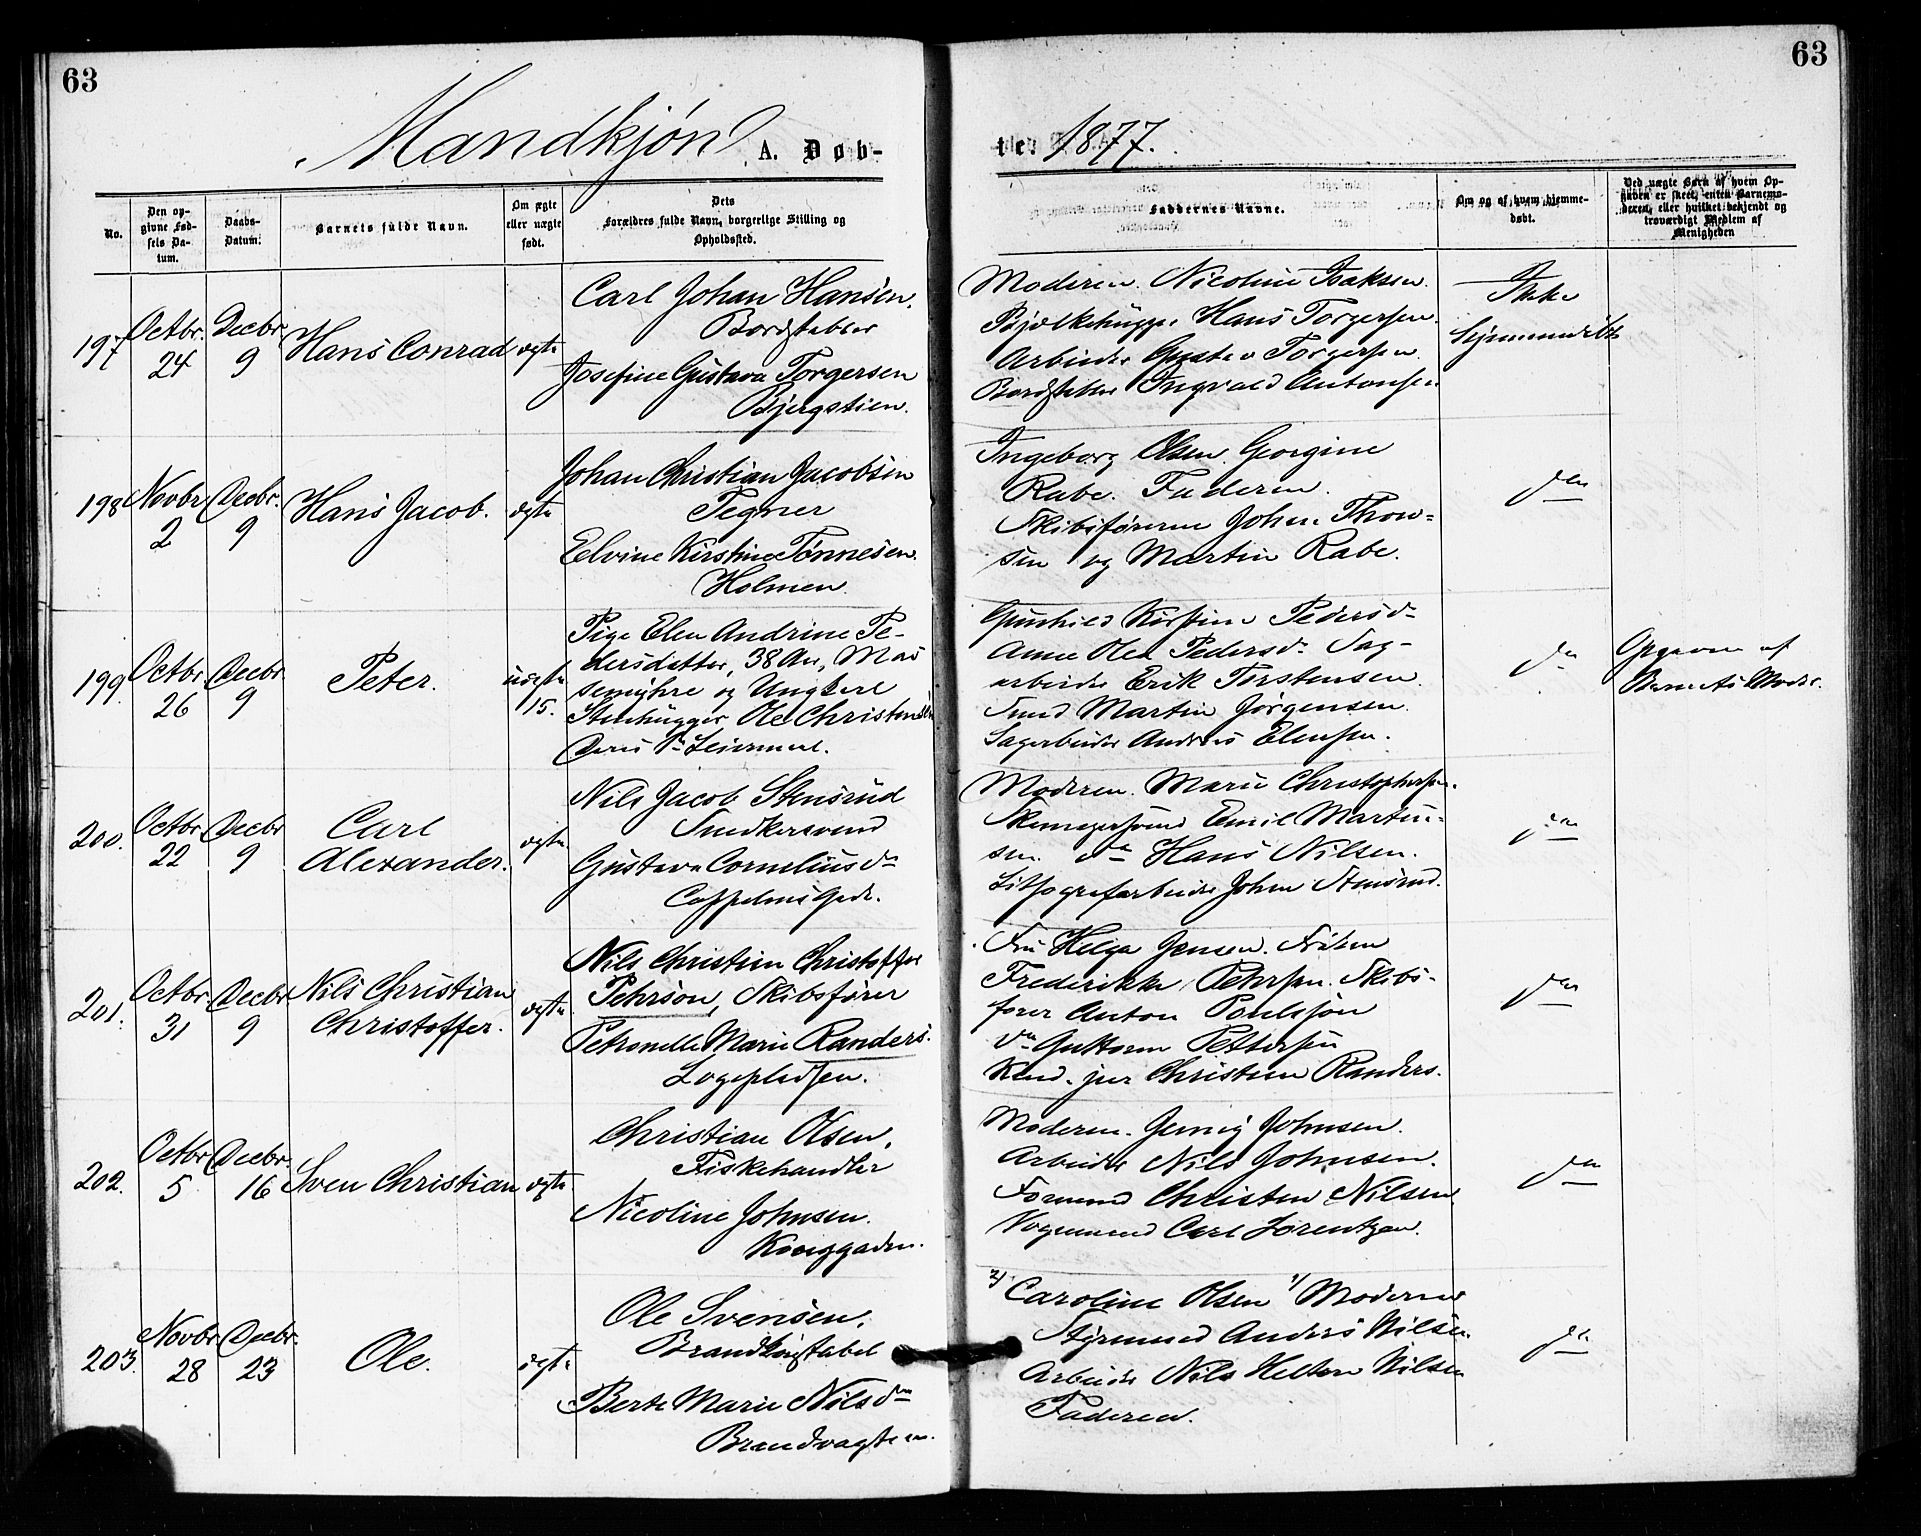 63
63
Mandkjøn A. Døb-
te. 1877.
No.
Den op-
givne Fød-
sels Da-
tum.
Daabs-
Datum.
Barnets fulde Navn.
Om ægte
eller uægte
født.
Dets
Forældres fulde Navn, borgerlige Stilling og
Opholdssted.
Faddernes Navne.
Om og af hvem hjemme-
døbt.
Ved uægte Børn af hvem Op-
gaven er skeet, enten Barnemo-
deren, eller hvilket bekjendt og
troværdigt Medlem af
Menigheden
197
Octbr.
24
Decbr
9
Hans Conrad
ægte
Carl Johan Hansen.
Bordstabler
Josefine Gustava Torgersen
Bjergstien.
Moderen. Nicoline Isaksen.
Bjælkehugger Hans Torgersen.
Arbeider Gustav Torgersen.
Bordstabler Ingvald Antonsen
Ikke
hjemmedøbt
198
Novbr
2
Decbr.
9
Hans Jacob.
ægte
Johan Christian Jacobsen
Tegner
Elvine Kirstine Tønnesen.
Holmen.
Ingeborg Olsen. Georgine
Rabe. Faderen.
Skibsførerne Johan Thow-
sen og Martin Rabe.
do
199.
Octbr.
26
Decbr.
9
Peter.
uægte
15.
Pige Elen Andrine Pe-
dersdatter, 38 Aar, Mas
semyhre og Ungkarl
Stenhugger Ole Christensen
Deres 1ste Leiermaal.
Gunhild Kirstine Pedersdr
Anne Olea Pedersdr Sag-
arbeider Erik Torstensen.
Smed Martin Jørgensen.
Sagarbeider Anders Elensen.
do
Opgaven af
Barnets Moder.
200.
Octbr
22
Decbr
9
Carl
Alexander.
ægte
Nils Jacob Stensrud
Snedkersvend
Gustava Corneliusdr
Coppelens Gade.
Moderen. Marie Christophersen.
Skomagersvend Emil Martin-
sen. do Hans Nilsen.
Lithografarbeider Johan Stensrud.
do
201.
Octbr
31
Decbr.
9
Nils Christian
Christoffer.
ægte
Nils Christian Christoffer
Pehrson, Skibsfører
Petronelle Marie Randers.
Løgepladsen.
Fru Helga Jensen. Frøken
Frederikke Pehrsen. Skibs-
fører Anton Poulsson
do Guttorm Pettersen
Kand. jur Christian Randers.
do
202.
Octbr
5
Decbr.
16
Sven Christian
ægte
Christian Olsen.
Fiskehandler
Nicoline Johnsen.
Konggaden.
Moderen. Jenny Johnsen.
Arbeider Nils Johnsen.
Formand Christen Nilsen
Vognmand Carl Lorentzen.
do
203.
Novbr
28
Decbr.
23
Ole.
ægte
Ole Svensen.
Brandkonstabel
Berte Marie Nilsdr
Brandvagten.
2) Caroline Olsen 1) Moderen
Styrmand Anders Nilsen.
Arbeider Nils Nilsen
Faderen.
do